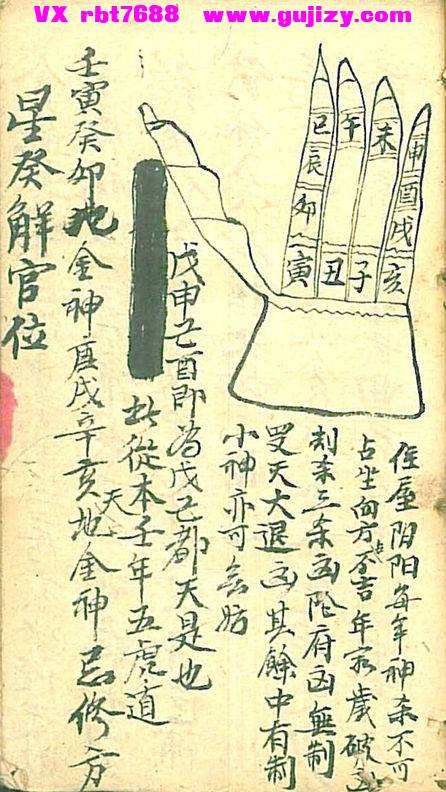 VX rbt7688 www.gujizy.com
巳 午 未 申
辰 酉
卯 戌
寅 丑 子 亥
住屋阴阳每年神杀不可
占坐向方不吉年家歲破凶
制杀三杀凶阴府凶無制
受天大退凶其餘中有制
小神亦可無妨
戊申己酉即為戊己都天是也
此從本壬年五虎遁
壬寅癸卯地金神庚戌辛亥天地金神忌修方
星癸解官位